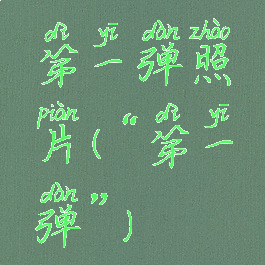 dì yī dàn zhào
第一弹照
piàn dì yī
片(“第一
dàn
弹”)